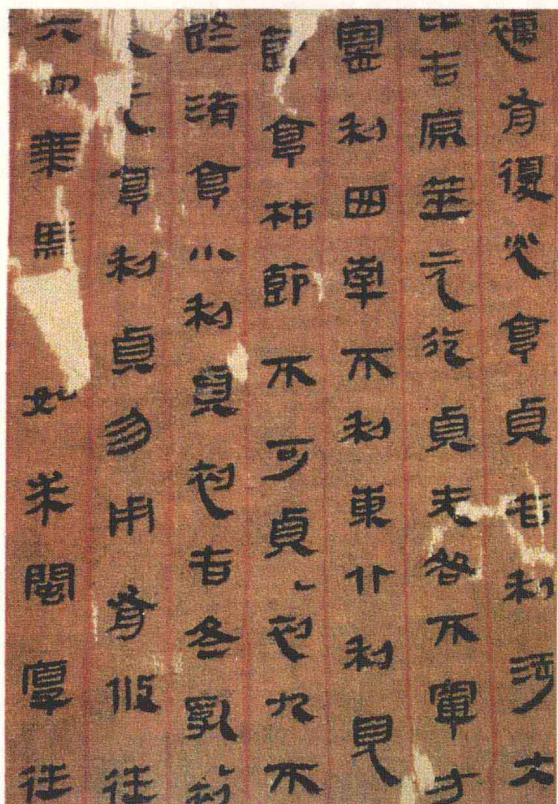 襦有復光亨貞吉利涉大
比吉原筮元永貞无咎不寧方
蹇利西南不利東北利見
節亨枯節不可貞·初九不
既濟亨小利貞初吉冬乳·初
元亨利貞勿用有攸往
六四乘馬 如求閩厚往